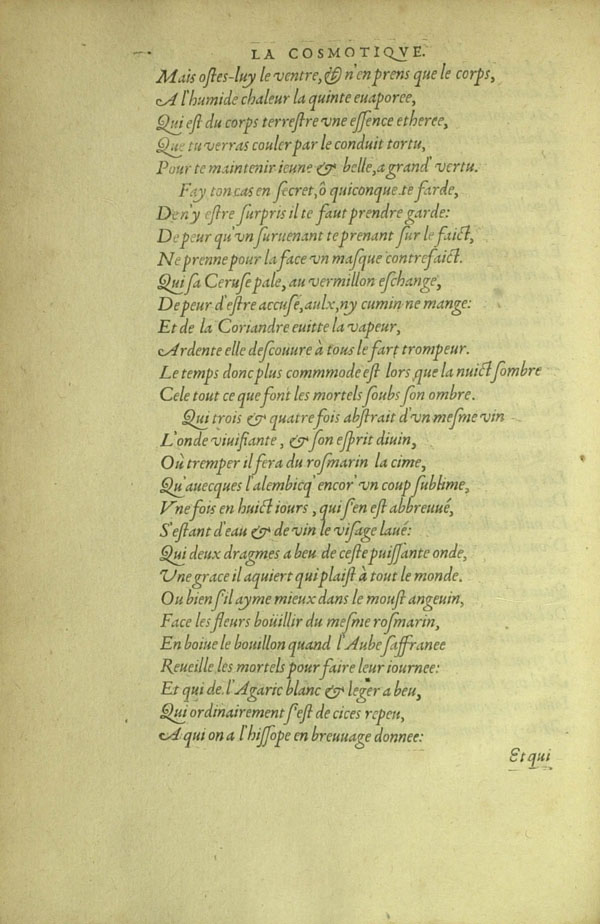 LA COSMOTIQVE.
Mais ostes-luy le ventre, & n'en prens que le corps,
A l'humide chaleur la quinte euaporee,
Qui est du corps terrestre vne essence etheree,
Que tu verras couler par le conduit tortu,
Pour te maintenir ieune & belle, a grand' vertu.
Fay ton cas en secret, ô quiconque te farde,
De n'y estre surpris il te faut prendre garde:
De peur qu'vn suruenant te prenant sur le faict,
Ne prenne pour la face vn masque contrefaict.
Qui sa Ceruse pale, au vermillon eschange,
De peur d'estre accusé, aulx, ny cumin ne mange:
Et de la Coriandre euitte la vapeur,
Ardente elle descouure à tous le fart trompeur.
Le temps donc plus commmode est lors, que la nuict sombre
Cele tout ce que font les mortels soubs son ombre.
Qui trois & quatre fois abstrait d'vn mesme vin
L'onde viuifiante, & son esprit diuin,
Où tremper il fera du rosmarin la cime,
Qu'auecques l'alembicq' encor' vn coup sublime,
Vne fois en huict iours, qui s'en est abbreuué,
S'estant d'eau & de vin le visage laué:
Qui deux dragmes a beu de ceste puissante onde,
Vne grace il aquiert qui plaist à tout le monde.
Ou bien s'il ayme mieux dans le moust angeuin,
Face les fleurs boüillir du mesme rosmarin,
En boiue le bouillon quand l'Aube saffranee
Reueille les mortels pour faire leur iournee:
Et qui de l'Agaric blanc & leger a beu,
Qui ordinairement s'est de cices repeu,
A qui on a l'hissope en breuuage donnee:
Et qui